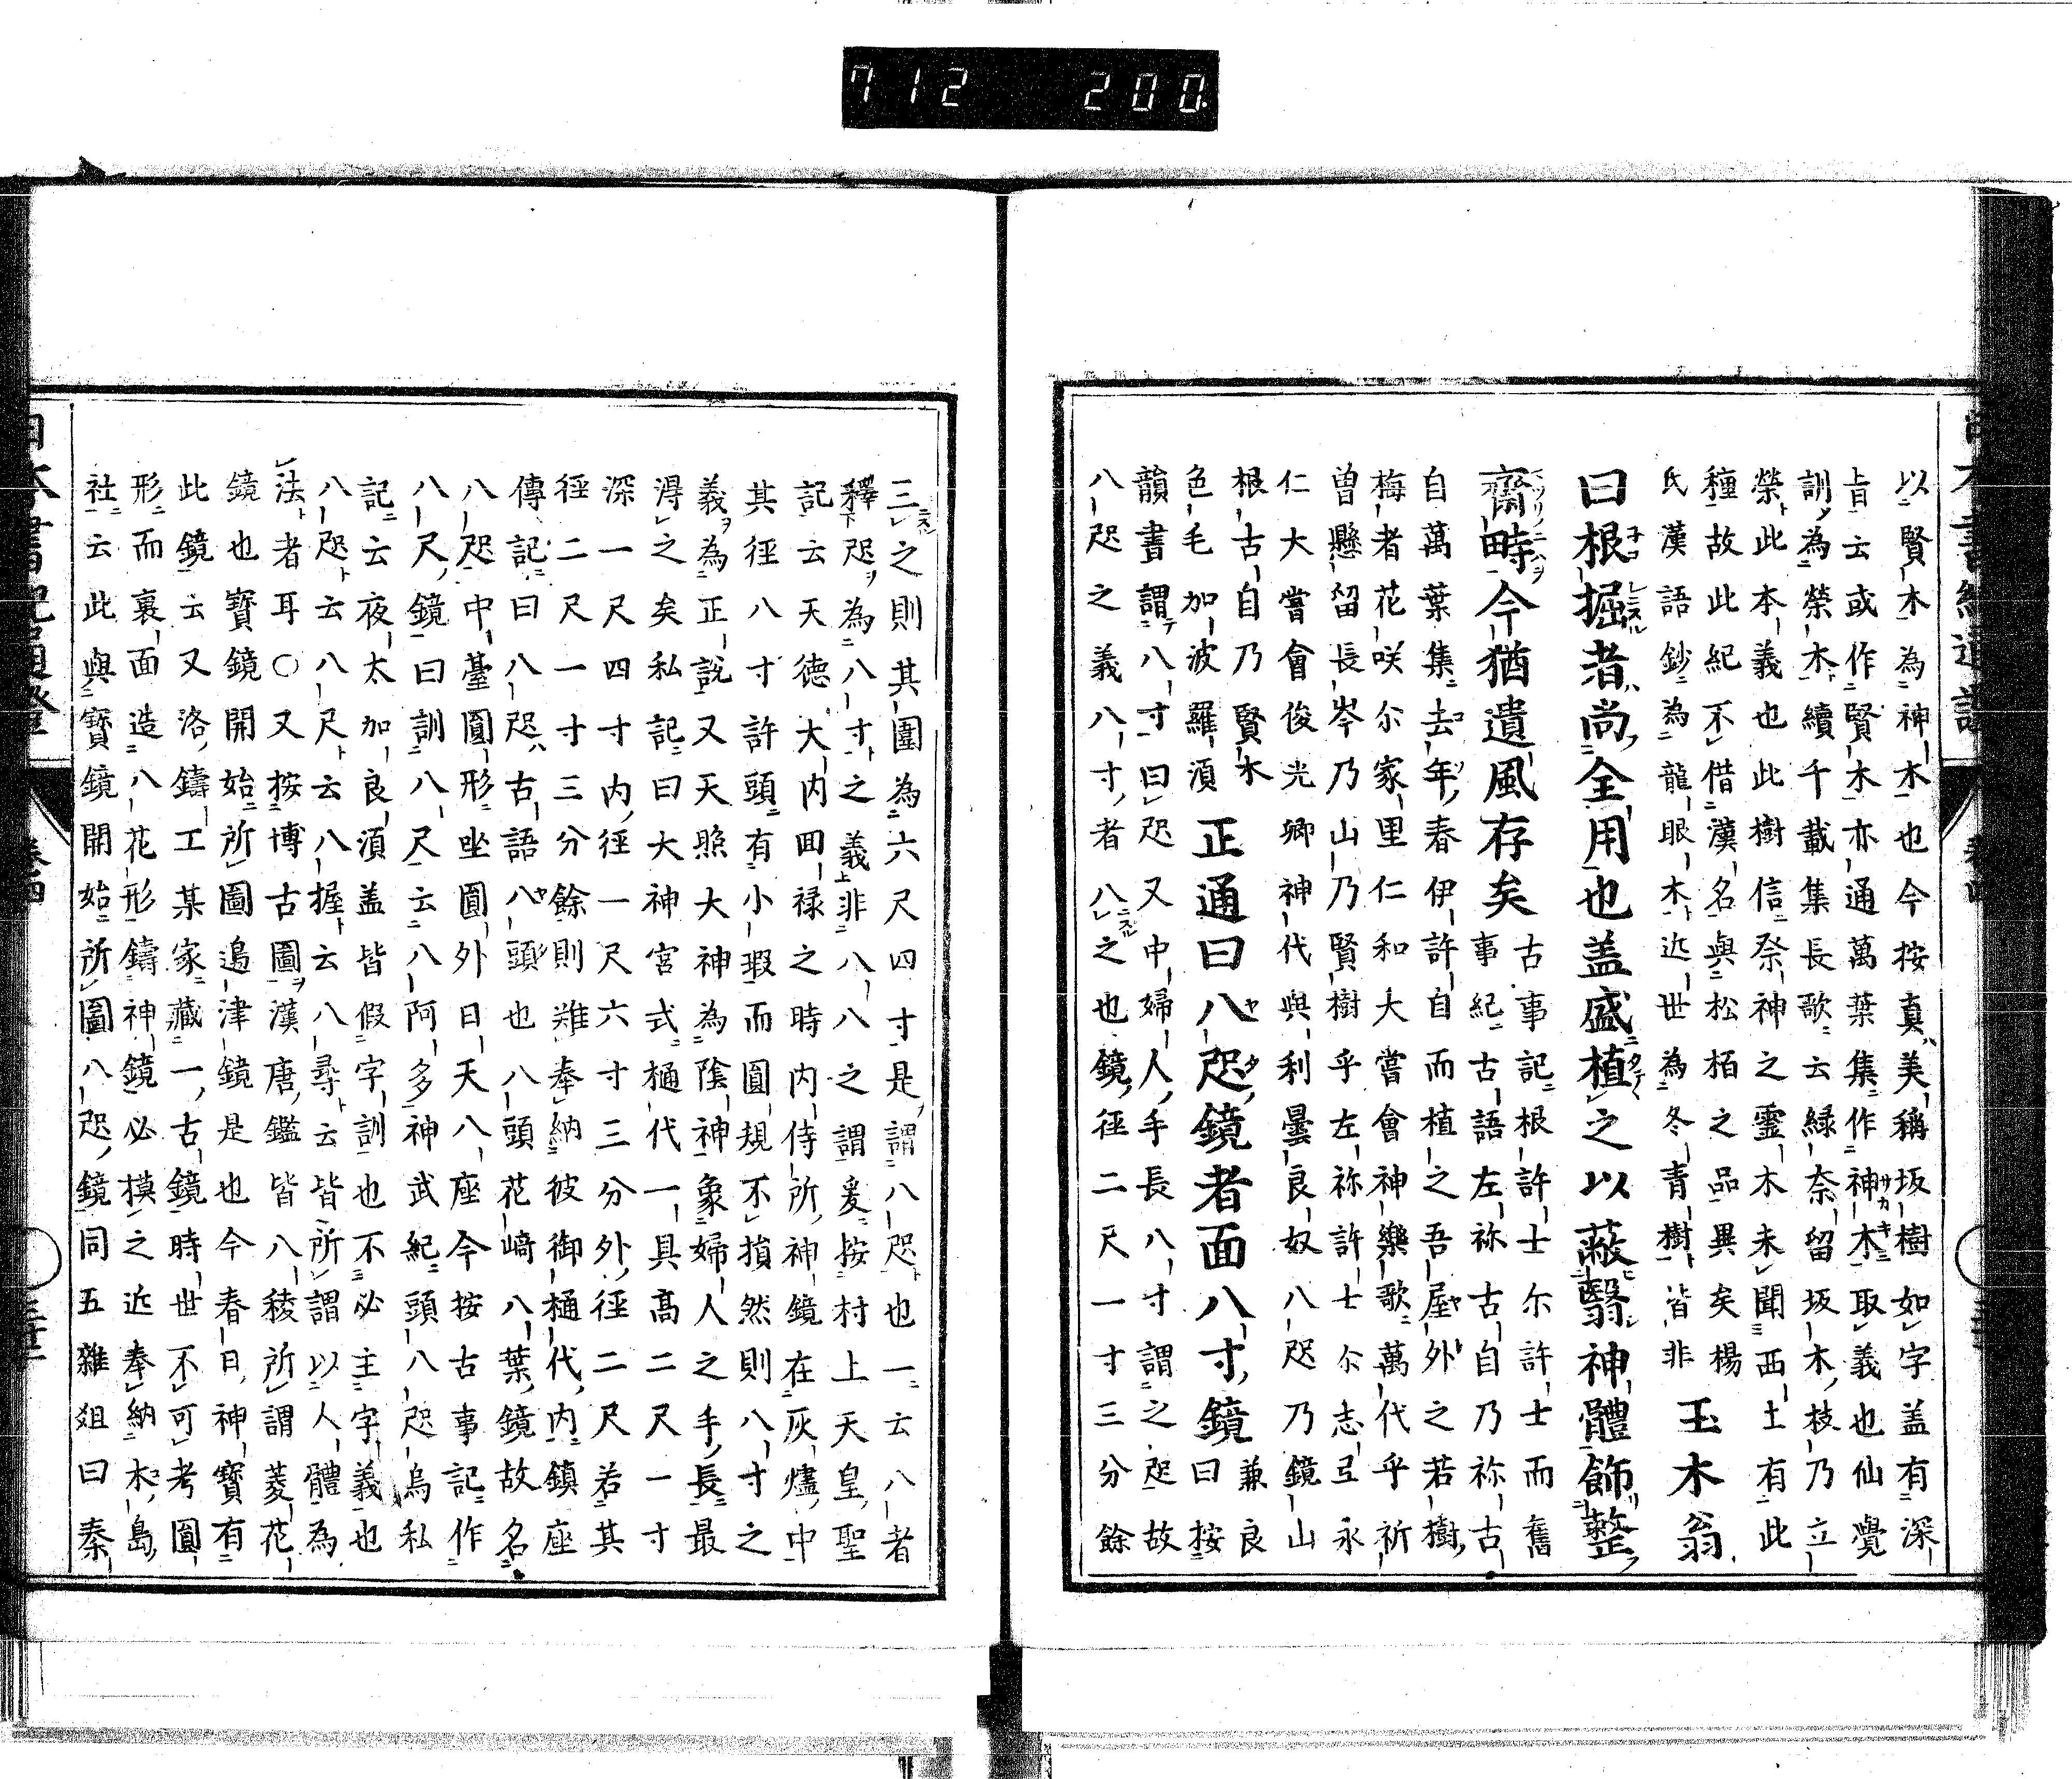 712 200
以賢木為神木也今按真美稱坂樹如字盖有深
旨云或作賢木亦通萬葉集作神木取義也仙覺
訓為榮木續千載集長歌云緑奈留坂木枝乃立
榮此本義也此樹信祭神之靈木未聞西土有此
種故此紀不借漢名與松栢之品異矣楊
氏漢語鈔為龍眼木近世為冬青樹皆非
玉木翁
曰根掘者尚全用也盖盛植之以蔽翳神體飾整
齋畤今猶遺風存矣
古事記根許士尓許士而舊
事紀古語左祢古自乃祢古
自萬葉集去年春伊許自而植之吾屋外之若樹
梅者花咲尓家里仁和大嘗會神樂歌萬代乎祈
曽懸留長岑乃山乃賢樹乎左祢許士尓志弖永
仁大嘗會俊光卿神代與利曇良奴八咫乃鏡山
根古自乃賢木
色毛加波羅須
正通曰八咫鏡者面八寸鏡
兼良
曰按
韻書謂八寸曰咫又中婦人手長八寸謂之咫故
八咫之義八寸者八之也鏡徑二尺一寸三分餘
三之則其圍為六尺四寸是謂八咫也一云八者
釋咫為八寸之義非八八之謂爰按村上天皇聖
記云天德大内回禄之時内侍所神鏡在灰燼中
其徑八寸許頭有小瑕而圓規不損然則八寸之
義為正說又天照大神為陰神象婦人之手長最
淂之矣私記曰大神宮式樋代一具髙二尺一寸
深一尺四寸内徑一尺六寸三分外徑二尺若其
徑二尺一寸三分餘則難奉納彼御樋代内鎮座
傳記曰八咫古語八頭也八頭花﨑八葉鏡故名
八咫中臺圓形坐圓外日天八座今按古事記作
八尺鏡曰訓八尺云八阿多神武紀頭八咫烏私
記云夜太加良湏盖皆假字訓也不必主字義也
八咫云八尺云八握云八尋云皆所謂以人體為
法者耳〇又按博古圖漢唐鑑皆八稜所謂菱花
鏡也寳鏡開始所圖邉津鏡是也今春日神寳有
此鏡云又洛鑄工某家藏一古鏡時世不可考圓
形而裏面造八花形鑄神鏡必模之近奉納木島
社云此與寳鏡開始所圖八咫鏡同五雜俎曰秦